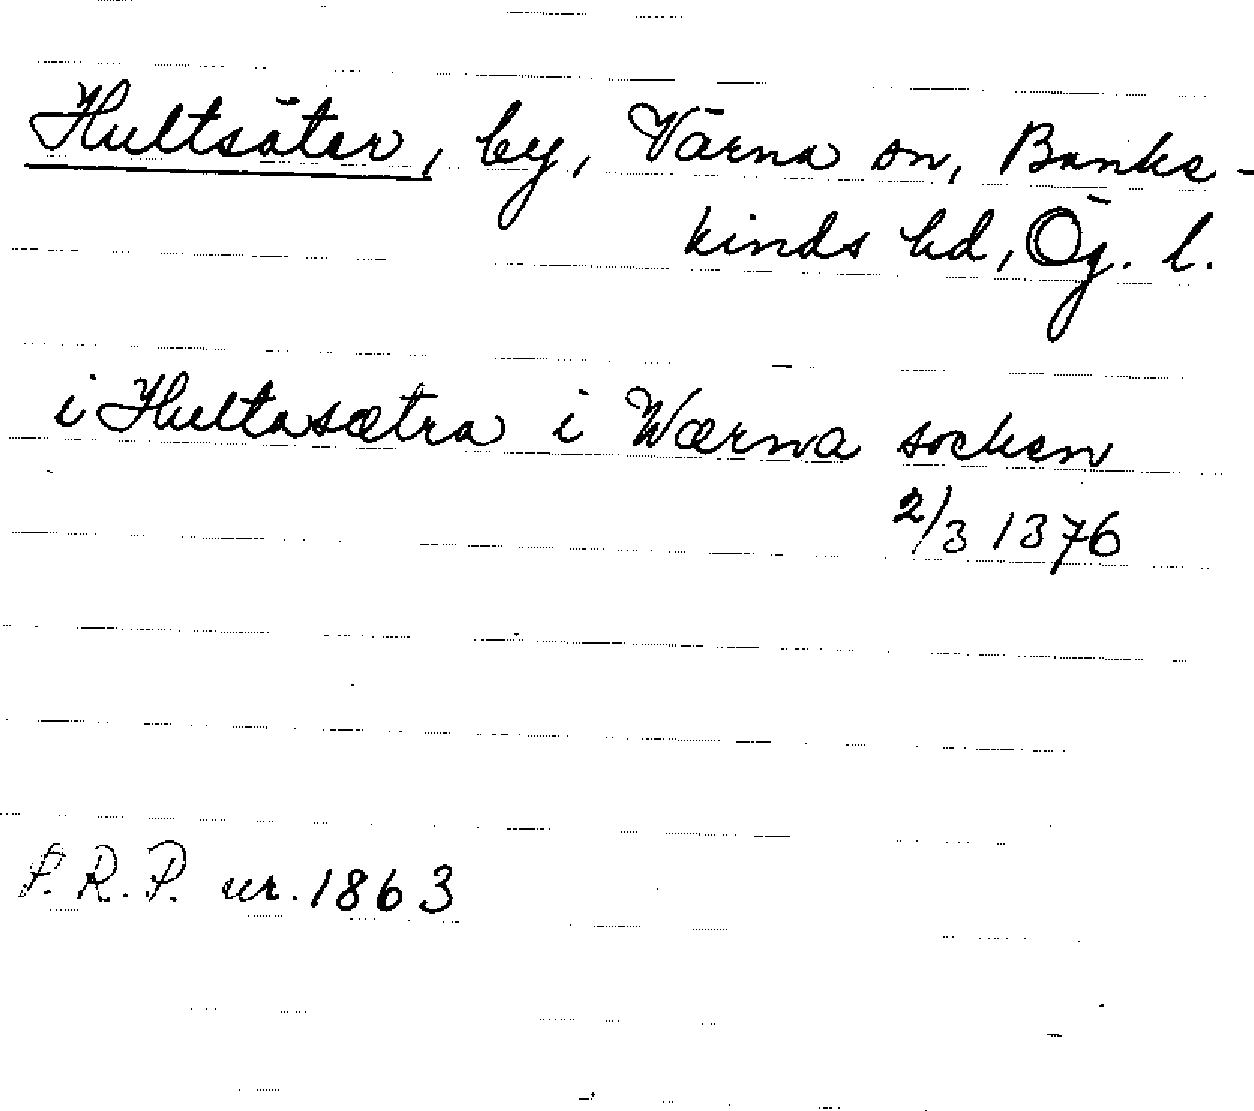 Hultsäter, by, Värna sn, Banks-
kinds hd, Ög. l.
i Hultasætra i Wærna socken
2/3 1376
P. R. P. nr. 1863